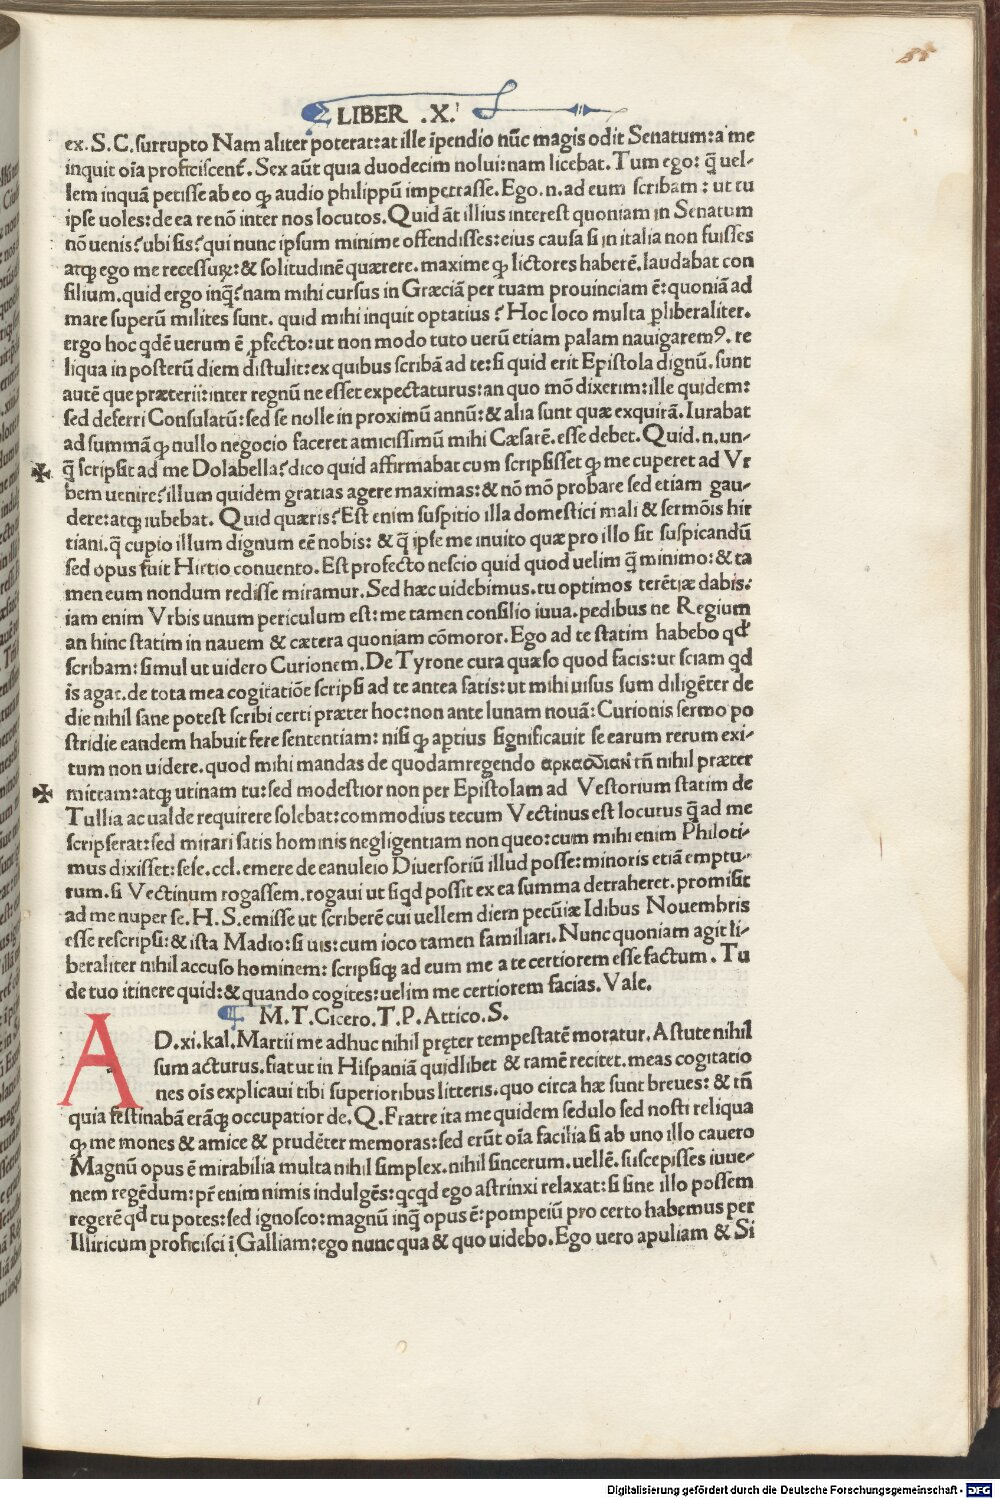 LIBER .X.
ex. S. C. surrupto Nam aliter poterat: at ille ĩpendio nũc magis odit Senatum: a me
inquit oĩa proficiscent̃. Sex aũt quia duodecim nolui: nam licebat. Tum ego: q̃ uel-
lem inquã petisse ab eo qꝫ audio philippũ impetrasse. Ego .n. ad eum scribam: ut tu
ipse uoles: de ea re nõ inter nos locutos. Quid ãt illius interest quoniam in Senatum
nõ uenis? ubi sis? qui nunc ipsum minime offendisses: eius causa si in italia non fuisses
atqꝫ ego me recessuꝝ: & solitudinẽ quærere. maxime qꝫ lictores haberẽ. laudabat con
silium. quid ergo inq̃? nam mihi cursus in Græciã per tuam prouinciam ẽ: quoniã ad
mare superũ milites sunt. quid mihi inquit optatius? Hoc loco multa ꝑliberaliter.
ergo hoc qdẽ uerum ẽ ꝓfecto: ut non modo tuto uerũ etiam palam nauigaremꝰ. re
liqua in posterũ diem distulit: ex quibus scribã ad te: si quid erit Epistola dignũ. sunt
autẽ que præterii: inter regnũ ne esset expectaturus: an quo mõ dixerim: ille quidem:
sed deferri Consulatũ: sed se nolle in proximũ annũ: & alia sunt quæ exquirã. Iurabat
ad summã qꝫ nullo negocio faceret amicissimũ mihi Cæsarẽ. esse debet. Quid .n. un-
q̃ scripsit ad me Dolabella? dico quid affirmabat cum scripsisset qꝫ me cuperet ad Vr
bem uenire? illum quidem gratias agere maximas: & nõ mõ probare sed etiam gau-
dere: atqꝫ iubebat. Quid quæris? Est enim suspitio illa domestici mali & sermõis hir
tiani. q̃ cupio illum dignum eẽ nobis: & q̃ ipse me inuito quæ pro illo sit suspicandũ
sed opus fuit Hirtio conuento. Est profecto nescio quid quod uelim q̃ minimo: & ta
men eum nondum redisse miramur. Sed hæc uidebimus. tu optimos terẽtiæ dabis.
iam enim Vrbis unum periculum est: me tamen consilio iuua. pedibus ne Regium
an hinc statim in nauem & cætera quoniam cõmoror. Ego ad te statim habebo qđ
scribam: simul ut uidero Curionem. De Tyrone cura quæso quod facis: ut sciam qđ
is agat. de tota mea cogitatiõe scripsi ad te antea satis: ut mihi uisus sum diligẽter de
die nihil sane potest scribi certi præter hoc: non ante lunam nouã: Curionis sermo po
stridie eandem habuit fere sententiam: nisi qꝫ aptius significauit se earum rerum exi-
tum non uidere. quod mihi mandas de quodamregendo tñ nihil præter
mittam: atqꝫ utinam tu: sed modestior non per Epistolam ad Vestorium statim de
Tullia ac ualde requirere solebat: commodius tecum Vectinus est locutus q̃ ad me
scripserat: sed mirari satis hominis negligentiam non queo: cum mihi enim Philoti-
mus dixisset: sese. ccl. emere de canuleio Diuersoriũ illud posse: minoris etiã emptu-
rum. si Vectinum rogassem. rogaui ut siqd possit ex ea summa detraheret. promisit
ad me nuper se. H. S. emisse ut scriberẽ cui uellem diem pecũiæ Idibus Nouembris
esse rescripsi: & ista Madio: si uis: cum ioco tamen familiari. Nunc quoniam agit li-
beraliter nihil accuso hominem: scripsiqꝫ ad eum me a te certiorem esse factum. Tu
de tuo itinere quid: & quando cogites: uelim me certiorem facias. Vale.
M. T. Cicero. T. P. Attico. S.
AD. xi. kal. Martii me adhuc nihil pręter tempestatẽ moratur. Astute nihil
sum acturus. fiat ut in Hispaniã quidlibet & tamẽ recitet. meas cogitatio
nes oĩs explicaui tibi superioribus litteris. quo circa hæ sunt breues: & tñ
quia festinabã erãqꝫ occupatior de. Q. Fratre ita me quidem sedulo sed nosti reliqua
qꝫ me mones & amice & prudẽter memoras: sed erũt oĩa facilia si ab uno illo cauero
Magnũ opus ẽ mirabilia multa nihil simplex. nihil sincerum. uellẽ. suscepisses iuue-
nem regẽdum: pr̃ enim nimis indulgẽs: qcqd ego astrinxi relaxat: si sine illo possem
regerẽ qđ tu potes: sed ignosco: magnũ inq̃ opus ẽ: pompeiũ pro certo habemus per
Illiricum proficisci ĩ Galliam: ego nunc qua & quo uidebo. Ego uero apuliam & Si
Digitalisierung gefördert durch die Deutsche Forschungsgemeinschaft - DFG